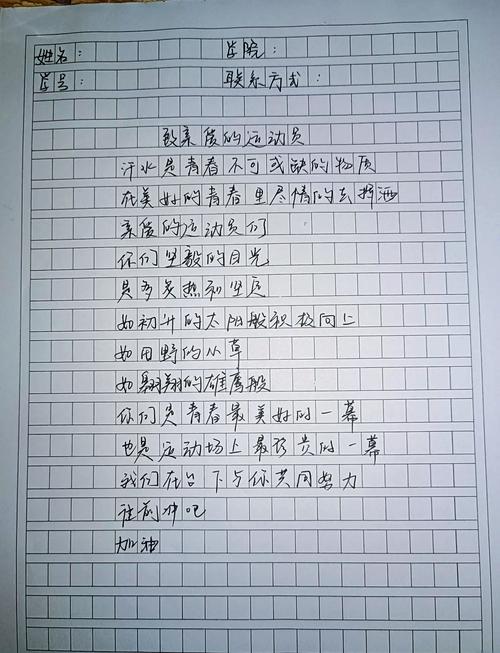 姓名 学院：
学号： 联系方式：
致亲爱的运动员
汗水是青春不可或缺的物质
在美好的青春里尽情的去挥洒
亲爱的运动员们
你们坚毅的目光
是多炙热和坚定
如初升的太阳般积极向上
如田野的小草
如翱翔的雄鹰般
你们是青春最美好的一幕
也是运动场上最珍贵的一幕
我们在台下与你共同努力
往前冲吧
加油